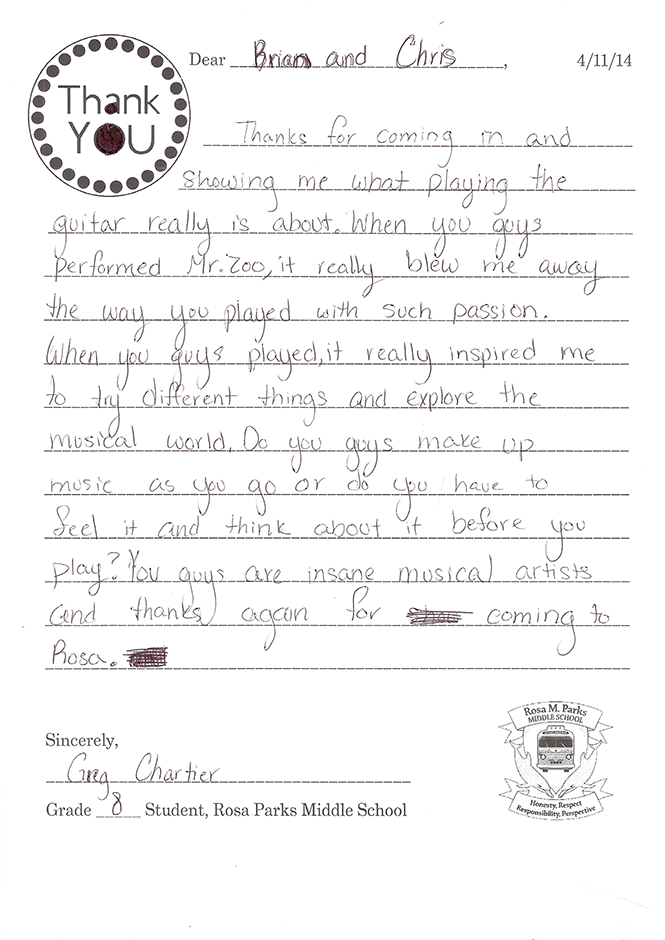 Thank
YOU
Dear Brian and Chris, 4/11/14
Thanks for coming in and
showing me what playing the
guitar really is about. When you guys
performed Mr. Zoo, it really blew me away
the way you played with such passion.
When you guys played, it really inspired me
to try different things and explore the
musical world. Do you guys make up
music as you go or do you have to
feel it and think about it before you
play? You guys are insane musical artists
and thanks again for coming to
Rosa.
Rosa M. Parks
MIDDLE SCHOOL
Honesty, Respect
Responsibility, Perspective
Sincerely,
Greg Chartier
Grade 8 Student, Rosa Parks Middle School